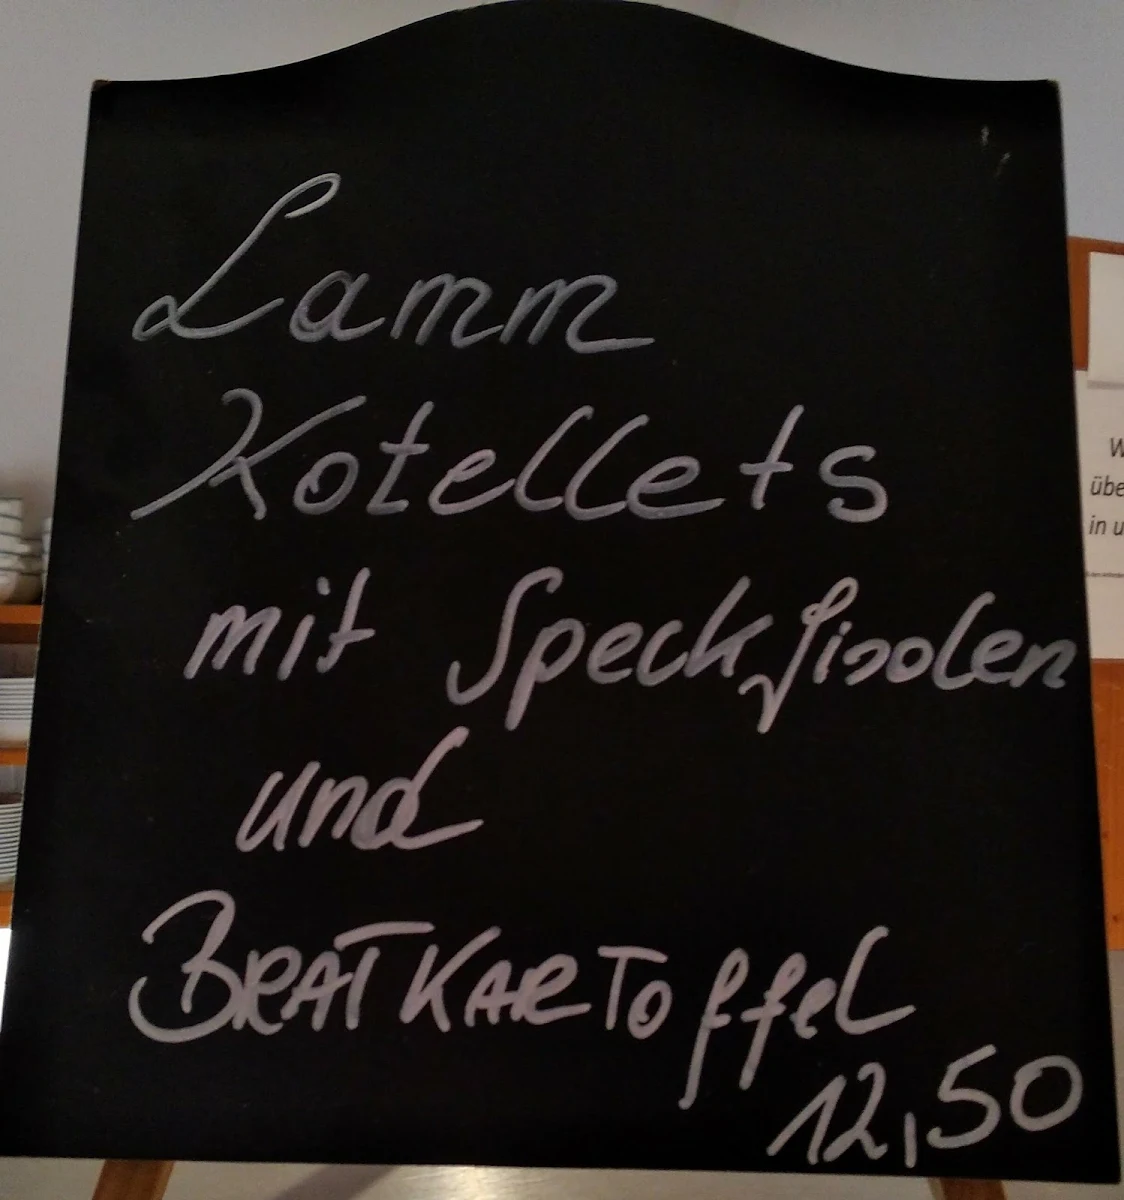 Lamm
Kotellets
mit Speckfisolen
und
BRATKARTOffel
12,50
W
übe
in u